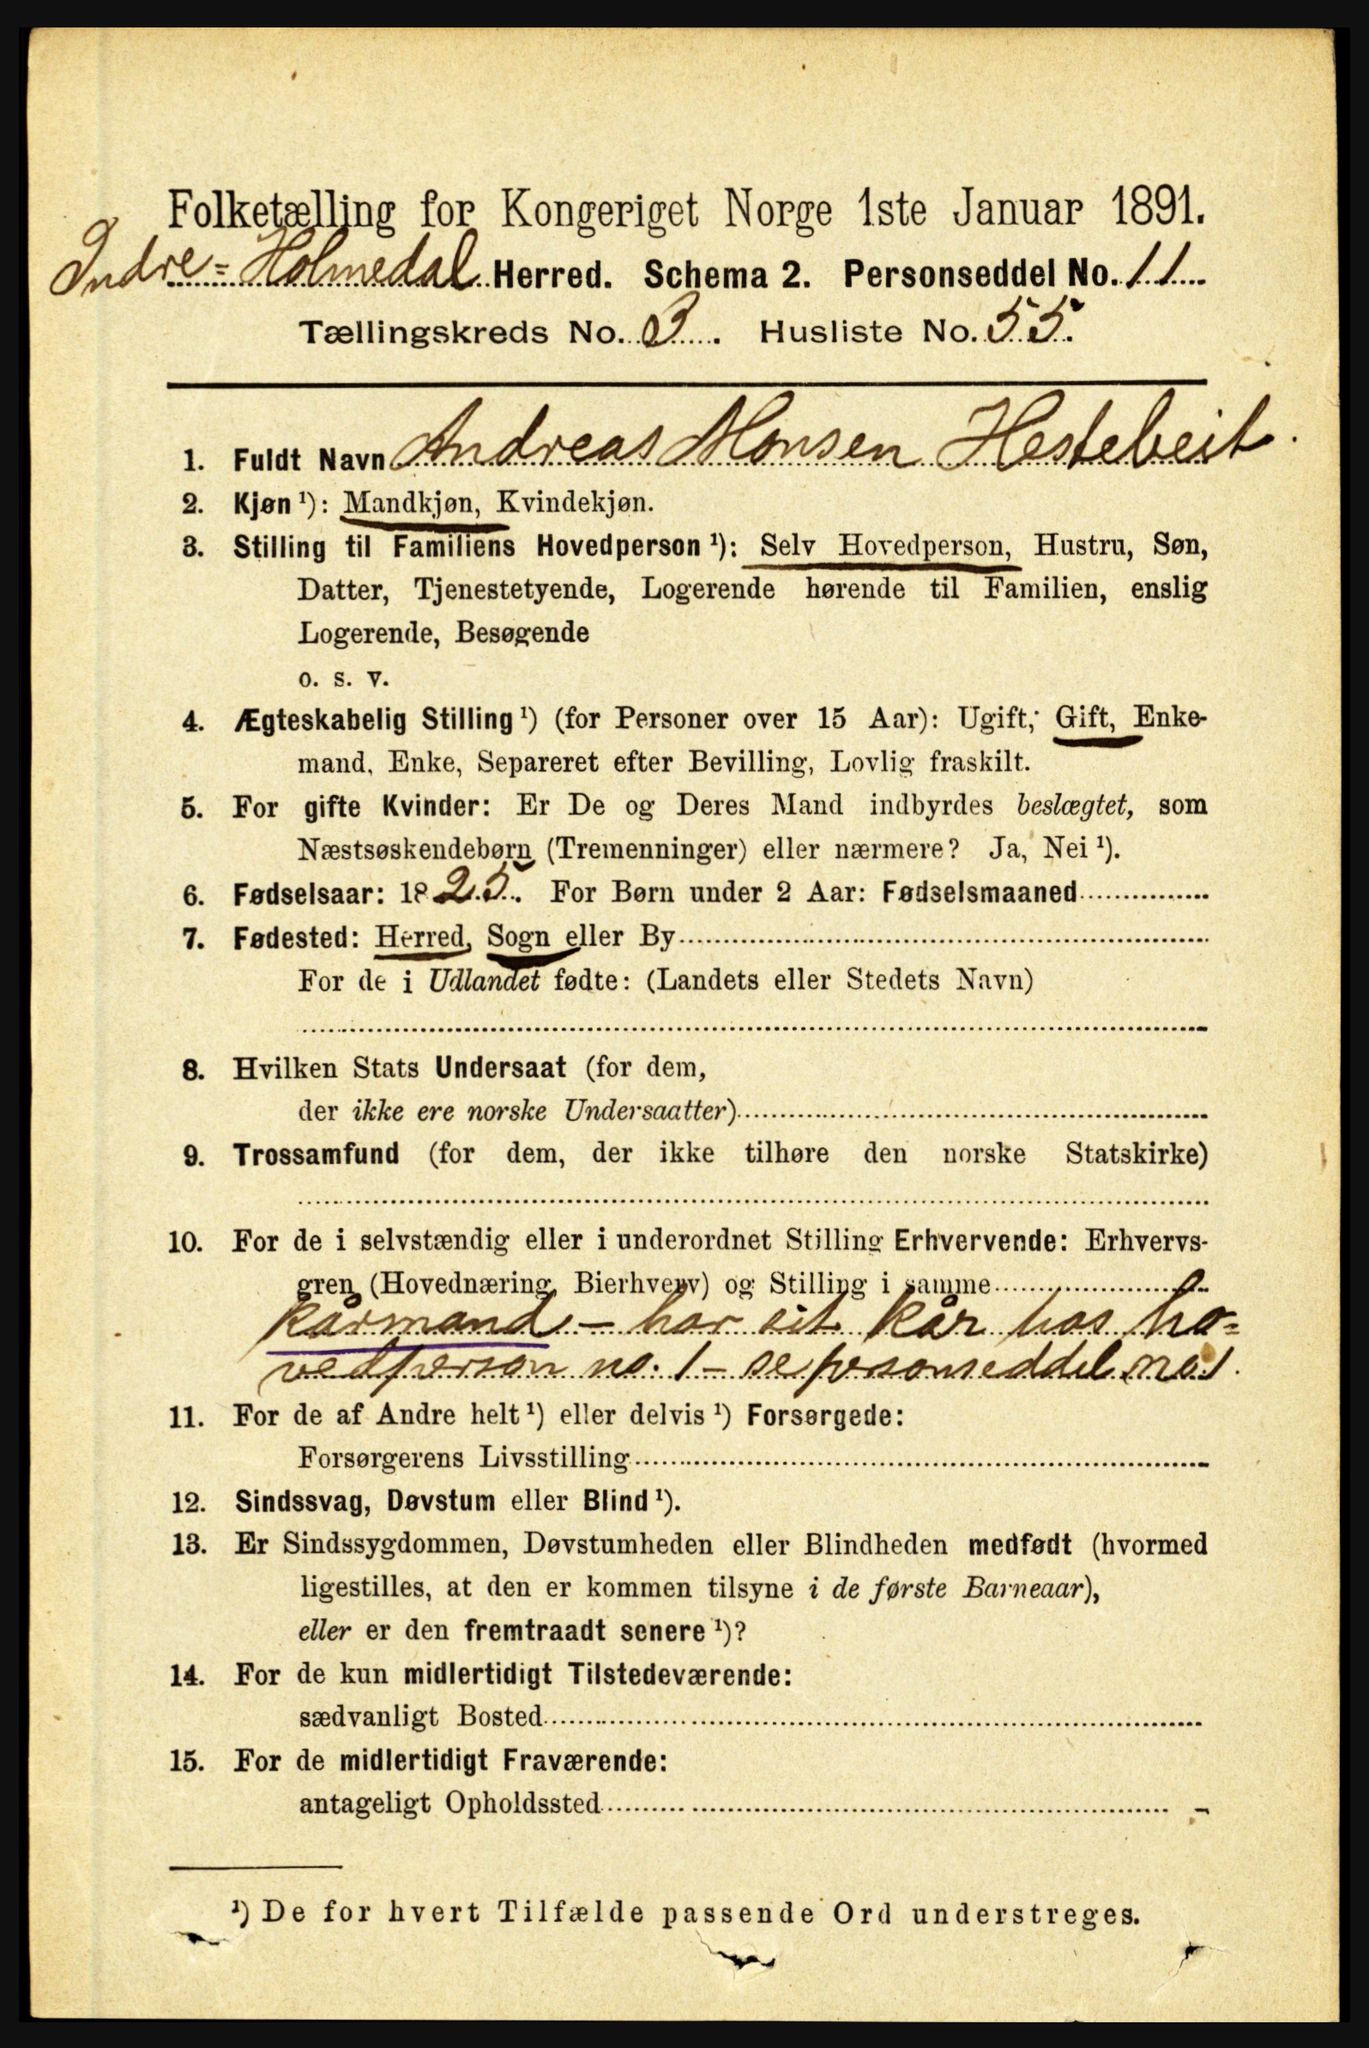 Folketælling for Kongeriget Norge 1ste Januar 1891.
Indre-Holmedal Herred. Schema 2. Personseddel No. 11
Tællingskreds No. 3. Husliste No. 55.
1. Fuldt Navn Andreas Monsen Hestebeit
2. Kjøn ¹): Mandkjøn, Kvindekjøn.
3. Stilling til Familiens Hovedperson ¹): Selv Hovedperson, Hustru, Søn,
Datter, Tjenestetyende, Logerende hørende til Familien, enslig
Logerende, Besøgende
o. s. v.
4. Ægteskabelig Stilling ¹) (for Personer over 15 Aar): Ugift, Gift, Enke-
mand, Enke, Separeret efter Bevilling, Lovlig fraskilt.
5. For gifte Kvinder: Er De og Deres Mand indbyrdes beslægtet, som
Næstsøskendebørn (Tremenninger) eller nærmere? Ja, Nei ¹).
6. Fødselsaar: 1825. For Børn under 2 Aar: Fødselsmaaned
7. Fødested: Herred, Sogn eller By
For de i Udlandet fødte: (Landets eller Stedets Navn)
8. Hvilken Stats Undersaat (for dem,
der ikke ere norske Undersaatter)
9. Trossamfund (for dem, der ikke tilhøre den norske Statskirke)
10. For de i selvstændig eller i underordnet Stilling Erhvervende: Erhvervs-
gren (Hovednæring, Bierhverv) og Stilling i samme
kårmand - har sit kår hos ho=
vedperson no. 1 - se personseddel no. 1.
11. For de af Andre helt ¹) eller delvis ¹) Forsørgede:
Forsørgerens Livsstilling
12. Sindssvag, Døvstum eller Blind ¹).
13. Er Sindssygdommen, Døvstumheden eller Blindheden medfødt (hvormed
ligestilles, at den er kommen tilsyne i de første Barneaar),
eller er den fremtraadt senere ¹)?
14. For de kun midlertidigt Tilstedeværende:
sædvanligt Bosted
15. For de midlertidigt Fraværende:
antageligt Opholdssted
¹) De for hvert Tilfælde passende Ord understreges.